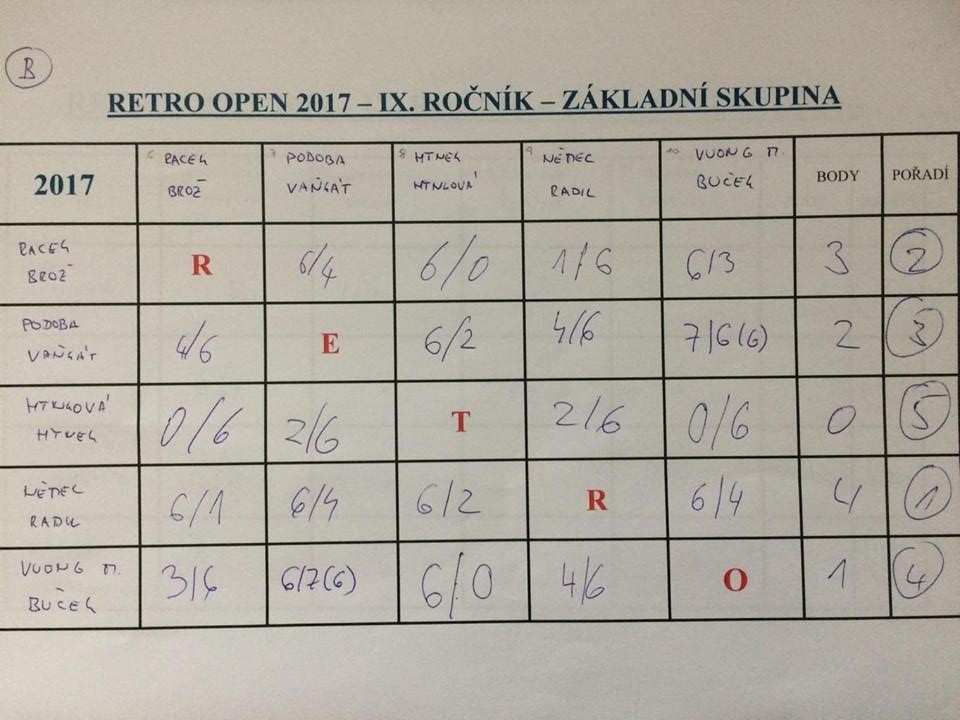 B
RETRO OPEN 2017 – IX. ROČNÍK – ZÁKLADNÍ SKUPINA
2017 6 RACEK BROŽ 7 PODOBA VAŇGÁT 8 HTNEK HTNKOVÁ 9 NĚMEC RADIL 10 VUONG M. BUČEK BODY POŘADÍ
RACEK BROŽ R 6/4 6/0 1/6 6/3 3 2
PODOBA VAŇGÁT 4/6 E 6/2 4/6 7/6(6) 2 3
HÝNEK 0/6 2/6 T 2/6 0/6 0 5
NĚMEC RADIL 6/1 6/4 6/2 R 6/4 4 1
VUONG M. BUČEK 3/6 6/7(6) 6/0 4/6 O 1 4